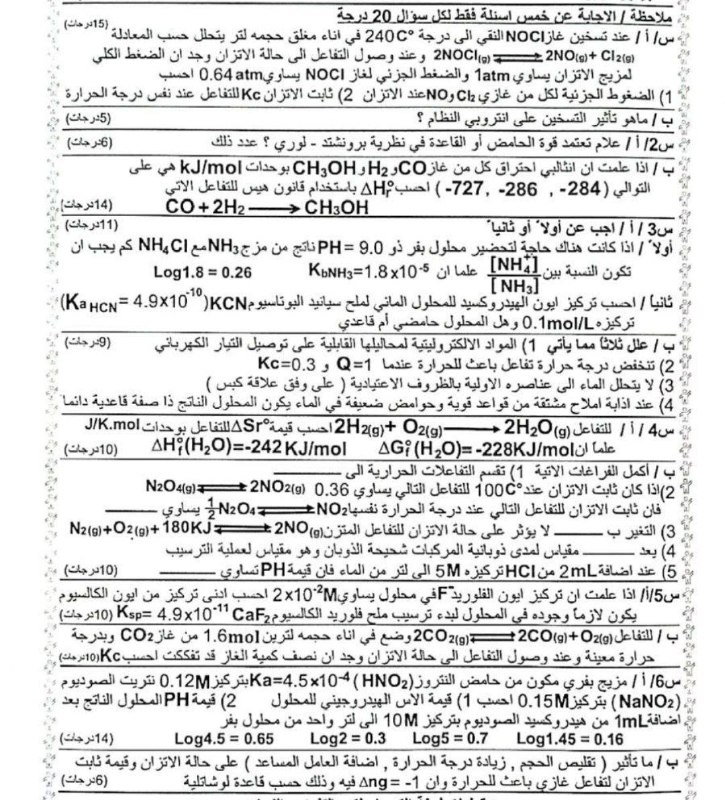 ملاحظة / الاجابة عن خمس اسئلة فقط لكل سؤال 20 درجة
س1/ أ / عند تسخين غاز NOCl النقي الى درجة 240C° في اناء مغلق حجمه لتر يتحلل حسب المعادلة (15درجات)
2NOCl(g) ⇌ 2NO(g) + Cl2(g) وعند وصول التفاعل الى حالة الاتزان وجد ان الضغط الكلي
لمزيج الاتزان يساوي 1atm والضغط الجزئي لغاز NOCl يساوي 0.64atm احسب
1) الضغوط الجزئية لكل من غازي Cl2 و NO عند الاتزان 2) ثابت الاتزان Kc للتفاعل عند نفس درجة الحرارة
ب / ماهو تأثير التسخين على انتروبي النظام ؟ (5درجات)
س2/ أ / علام تعتمد قوة الحامض أو القاعدة في نظرية برونشتد - لوري ؟ عدد ذلك (6درجات)
ب / اذا علمت ان انثالبي احتراق كل من غاز CO و H2 و CH3OH بوحدات kJ/mol هي على
التوالي ( 284- , 286- , 727-) احسب ΔH°r باستخدام قانون هيس للتفاعل الاتي
CO + 2H2 ⟶ CH3OH (14درجات)
س3 / أ / اجب عن أولاً أو ثانياً (11درجات)
أولاً / اذا كانت هناك حاجة لتحضير محلول بفر ذو PH = 9.0 ناتج من مزج NH3 مع NH4Cl كم يجب ان
تكون النسبة بين [NH4+]/[NH3] علما ان KbNH3=1.8x10-5 Log1.8 = 0.26
ثانياً / احسب تركيز ايون الهيدروكسيد للمحلول المائي لملح سيانيد البوتاسيوم KCN (Ka HCN = 4.9x10-10)
تركيزه 0.1mol/L وهل المحلول حامضي أم قاعدي
ب / علل ثلاثاً مما يأتي 1) المواد الالكتروليتية لمحاليلها القابلية على توصيل التيار الكهربائي (9درجات)
2) تنخفض درجة حرارة تفاعل باعث للحرارة عندما Q=1 و Kc=0.3
3) لا يتحلل الماء الى عناصره الاولية بالظروف الاعتيادية ( على وفق علاقة كبس )
4) عند اذابة املاح مشتقة من قواعد قوية وحوامض ضعيفة في الماء يكون المحلول الناتج ذا صفة قاعدية دائما
س4 / أ / للتفاعل 2H2(g) + O2(g) ⟶ 2H2O(g) احسب قيمة ΔSr° للتفاعل بوحدات J/K.mol
علما ان ΔG°f (H2O)= -228KJ/mol ΔH°f(H2O)=-242 KJ/mol (10درجات)
ب / أكمل الفراغات الاتية 1) تقسم التفاعلات الحرارية الى ______
2) اذا كان ثابت الاتزان عند 100C° للتفاعل التالي يساوي 0.36 N2O4(g) ⇌ 2NO2(g)
فان ثابت الاتزان للتفاعل التالي عند درجة الحرارة نفسها NO2 ⇌ ½N2O4 يساوي ______
3) التغير ب ______ لا يؤثر على حالة الاتزان للتفاعل المتزن N2(g)+O2(g)+180KJ ⇌ 2NO(g)
4) يعد ______ مقياس لمدى ذوبانية المركبات شحيحة الذوبان وهو مقياس لعملية الترسيب
5) عند اضافة 2mL من HCl تركيزه 5M الى لتر من الماء فان قيمة PH تساوي ______ (10درجات)
س5/أ/ اذا علمت ان تركيز ايون الفلوريد F- في محلول يساوي 2x10-2M احسب ادنى تركيز من ايون الكالسيوم
يكون لازماً وجوده في المحلول لبدء ترسيب ملح فلوريد الكالسيوم CaF2 Ksp= 4.9x10-11 (10درجات)
ب / للتفاعل 2CO2(g) ⇌ 2CO(g)+O2(g) وضع في اناء حجمه لترين 1.6mol من غاز CO2 وبدرجة
حرارة معينة وعند وصول التفاعل الى حالة الاتزان وجد ان نصف كمية الغاز قد تفككت احسب Kc (10درجات)
س6/ أ / مزيج بفري مكون من حامض النتروز (HNO2) Ka=4.5x10-4 بتركيز 0.12M نتريت الصوديوم
(NaNO2) بتركيز 0.15M احسب 1) قيمة الاس الهيدروجيني للمحلول 2) قيمة PH المحلول الناتج بعد
اضافة 1mL من هيدروكسيد الصوديوم بتركيز 10M الى لتر واحد من محلول بفر
Log4.5 = 0.65 Log2 = 0.3 Log5 = 0.7 Log1.45 = 0.16 (14درجات)
ب / ما تأثير ( تقليص الحجم , زيادة درجة الحرارة , اضافة العامل المساعد ) على حالة الاتزان وقيمة ثابت
الاتزان لتفاعل غازي باعث للحرارة وان Δng= -1 فيه وذلك حسب قاعدة لوشاتلية (6درجات)